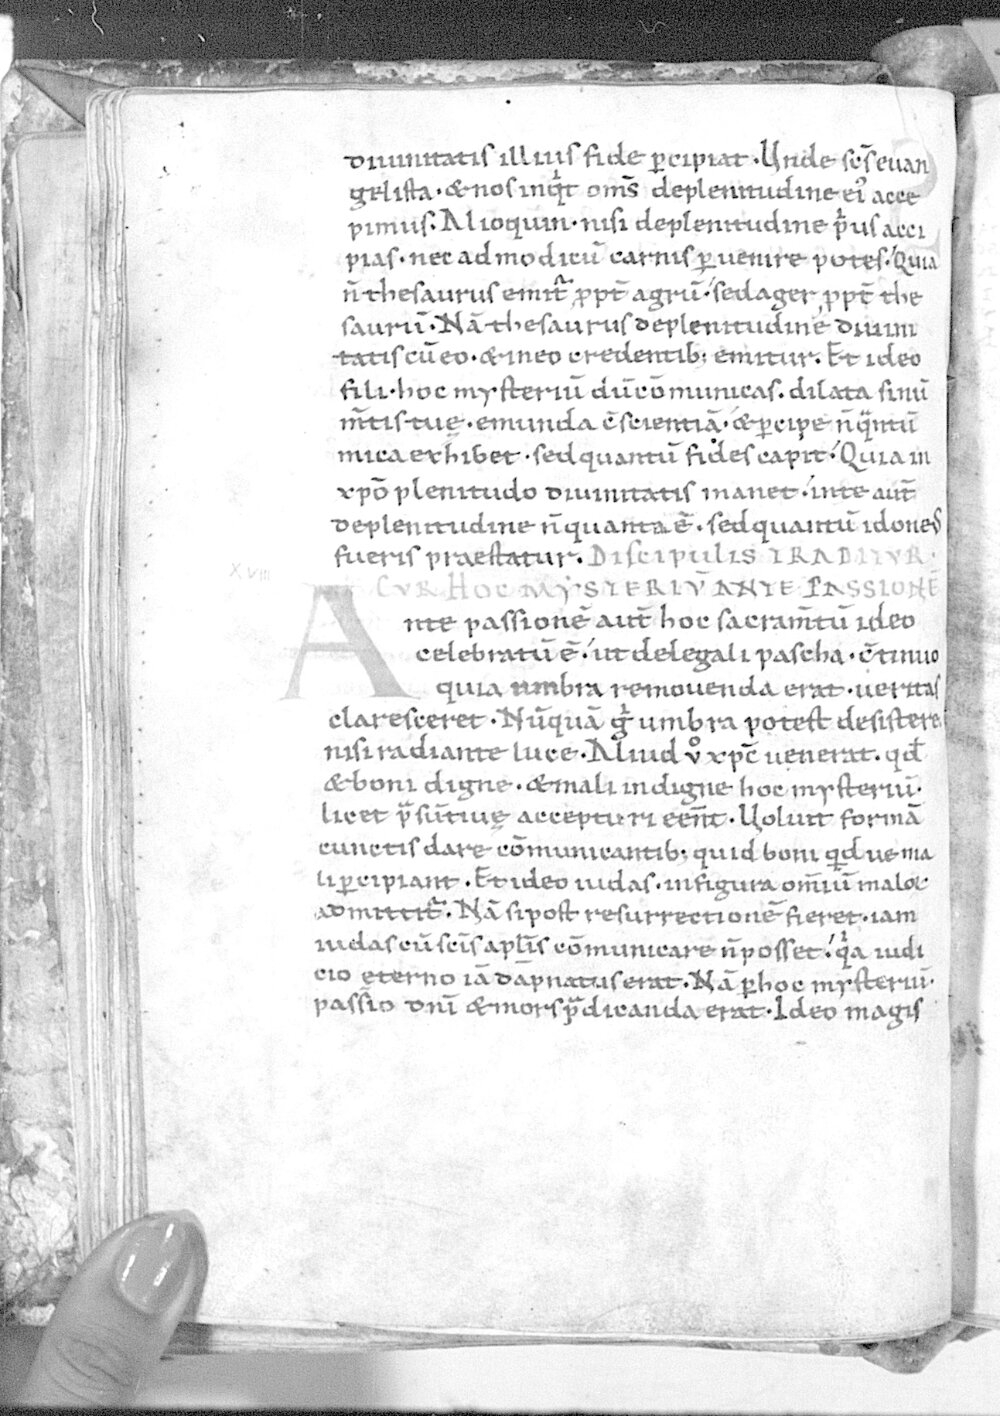 diuinitatis illius fide p̱cipiat · Unde sc̄s euan
gelista · & nos inqͥt om̄s deplenitudine eiꝰ acce
pimus. Alioquin · nisi deplenitudine pͥus acci
pias · nec ad modicū carnis ꝑuenire potes · Quia
n̄ thesaurus emit᷑ ꝓpt̄ agrū · sed ager ꝓpt̄ the
saurū · Nā thesaurus deplenitudine diuini
tatis cū eo · & in eo credentib; emitur. Et ideo
fili · hoc mysteriū dū cōmunicas. dilata sinū
m̄tis tuę · emunda c̄scientiā · & ꝑcipe n̄ qͣntū
mica exhibet · sed quantū fides capit · Quia in
xp̄o plenitudo diuinitatis manet · inte aut̄
deplenitudine n̄ quanta ē · sed quantū idoneꝰ
fueris praestatur. DISCIPULIS TRADITVR ·
XVIII CVR HOC MYSTERIV̄ ANTE PASSIONĒ
Ante passionē aut̄ hoc sacram̄tū ideo
celebratū ē · ut delegali pascha · c̄tinuo
quia umbra remouenda erat · ueritas
claresceret · Nūquā gͥ umbra potest desistere
nisi radiante luce · Aliud vͦ xp̄c uenerat · qd̄
& boni digne · & mali indigne hoc mysteriū ·
licet pͣsūtiue accepturi eēnt · Uoluit formā
cunctis dare cōmunicantib; quid boni qͥdue ma
li ꝑcipiant · Et ideo iudas · in figura om̄iū maloꝝ
admittit᷑ · Nā si post resurrectionē fieret · iam
iudas cū sc̄is apl̄is cōmunicare n̄ posset · qͥa iudi
cio ęterno iā dāpnatus erat · Nā ꝑ hoc mysteriū ·
passio dn̄i & mors p̄dicanda erat · Ideo magis